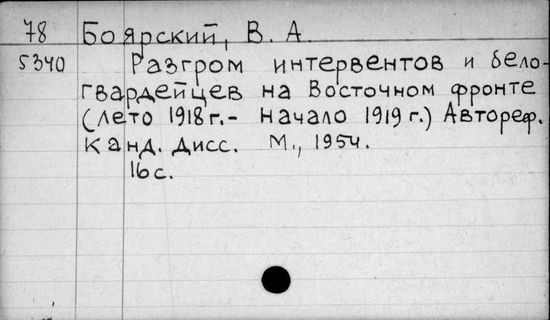 78 Боярский, В. А.
5340 Разгром интервентов и бело-
гвардейцев на Восточном фронте
(лето 1918 г.- начало 1919 г.) Автореф.
канд. дисс. М., 1954.
16 с.